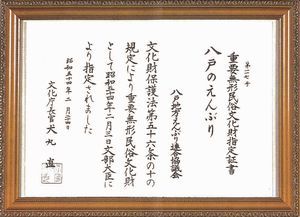 重要無形民俗文化財指定証書
八戸のえんぶり
八戸地方えんぶり連合協議会
文化財保護法第五十六条の十の
規定により重要無形民俗文化財
として昭和五十四年二月三日文部大臣に
より指定されました
昭和五十四年二月二十四日
文化庁長官 犬丸 直